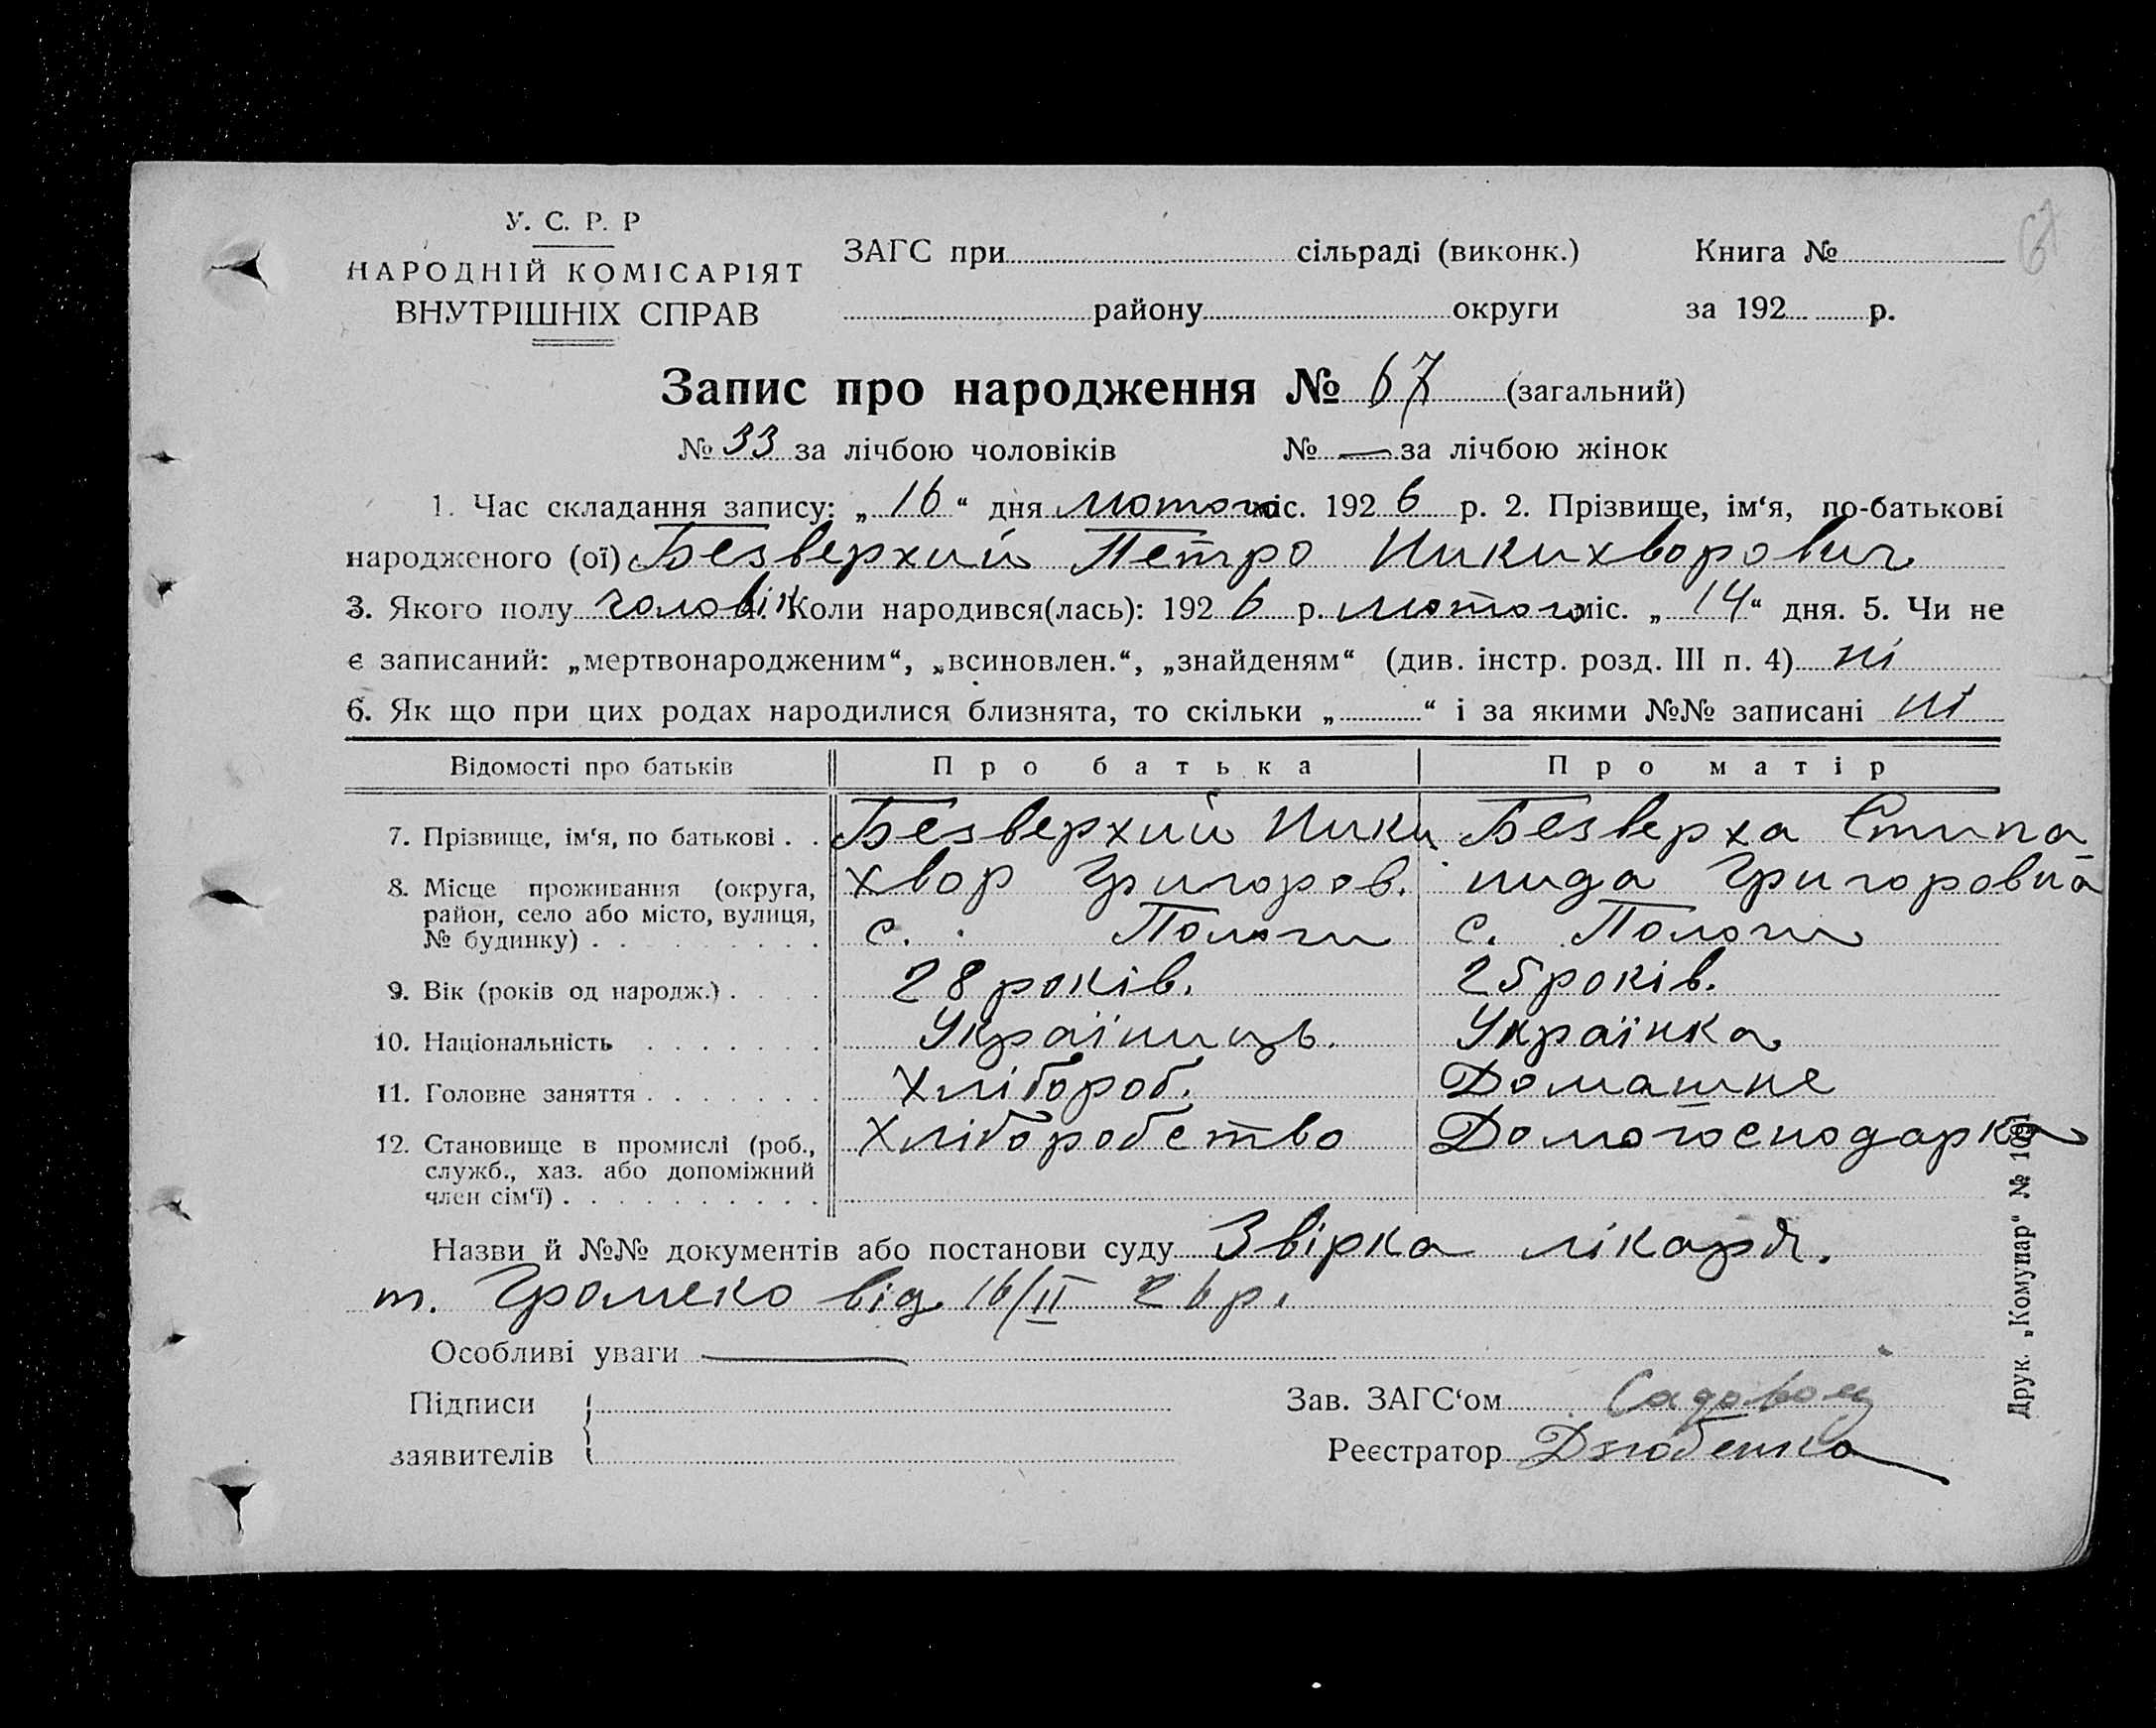 67
У. С. Р. Р
НАРОДНІЙ КОМІСАРІЯТ
ВНУТРІШНІХ СПРАВ
ЗАГС при сільраді (виконк.) Книга №
району округи за 192 р.
Запис про народження № 67 (загальний)
№ 33 за лічбою чоловіків № — за лічбою жінок
1. Час складання запису: „16“ дня лютого міс. 1926 р. 2. Прізвище, ім‘я, по-батькові
народженого (ої) Безверхий Петро Никихворович
3. Якого полу чоловік 4. Коли народився(лась): 1926 р. лютого міс. „14“ дня. 5. Чи не
є записаний: „мертвонародженим“, „всиновлен.“, „знайденям“ (див. інстр. розд. III п. 4) ні
6. Як що при цих родах народилися близнята, то скільки „ “ і за якими №№ записані ні
Відомості про батьків Про батька Про матір
7. Прізвище, ім‘я, по батькові . . Безверхий Ники Безверха Стипа
8. Місце проживання (округа, хвор Григоров. нида Григоровна
район, село або місто, вулиця,
№ будинку) . с. Пологи с. Пологи
9. Вік (років од народж.) . 28 років. 25 років.
10. Національність Україниць. Українка
11. Головне заняття . Хлібороб. Домашне
12. Становище в промислі (роб., Хліборобство Домогосподарка
служб., хаз. або допоміжний
член сім‘ї) .
Назви й №№ документів або постанови суду Звірка лікаря.
т. Громеко від 16/II 26 р.
Особливі уваги —
Підписи Зав. ЗАГС‘ом
заявителів Реєстратор
Друк. „Комунар“ №